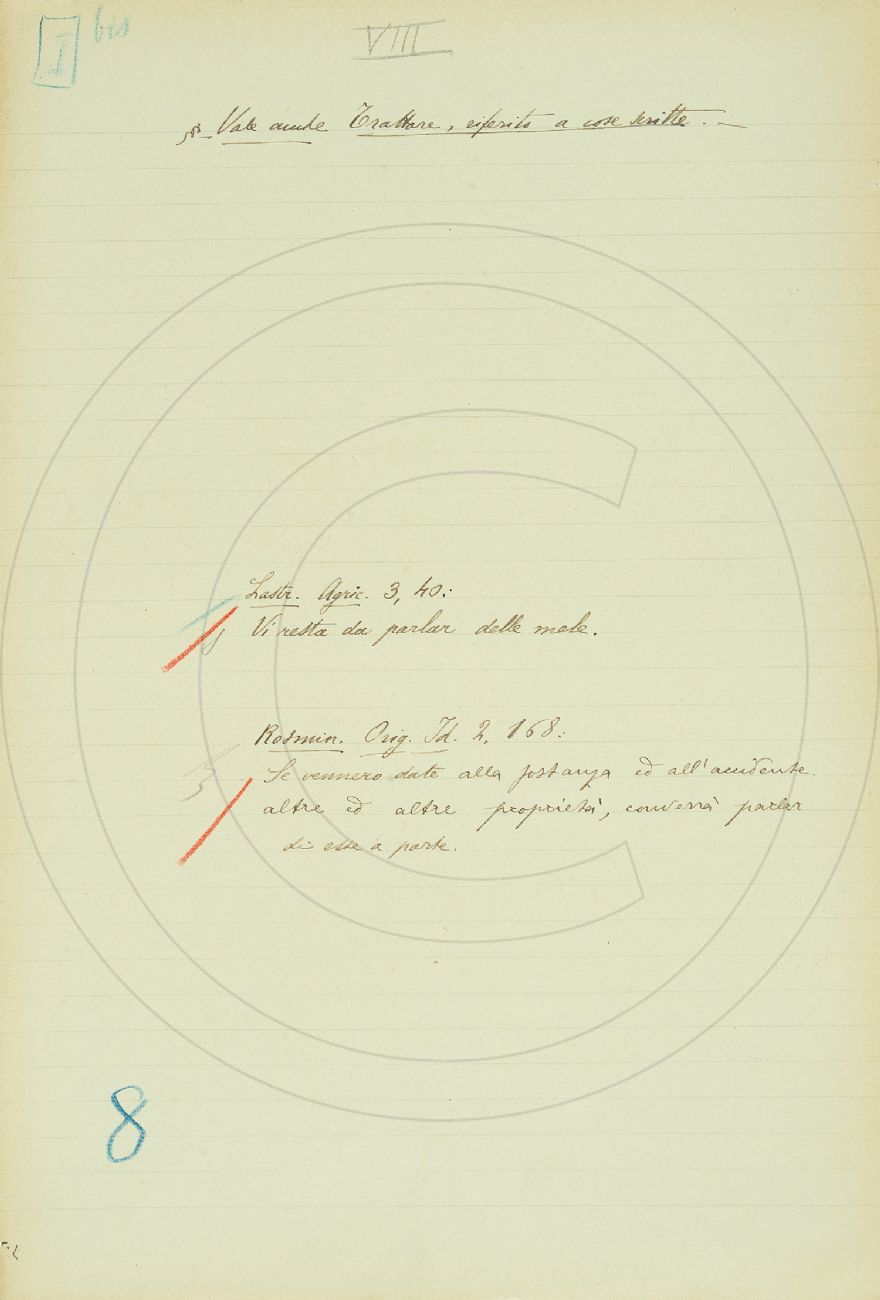 I bis
VIII
§ Vale anche Trattare, riferito a cose scritte. —
Lastr. Agric. 3, 40:
Vi resta da parlar delle mele.
Rosmin. Orig. Id. 2, 168:
Se vennero date alla sostanza ed all'accidente
altre ed altre proprietà, converrà parlar
di esse a parte.
8